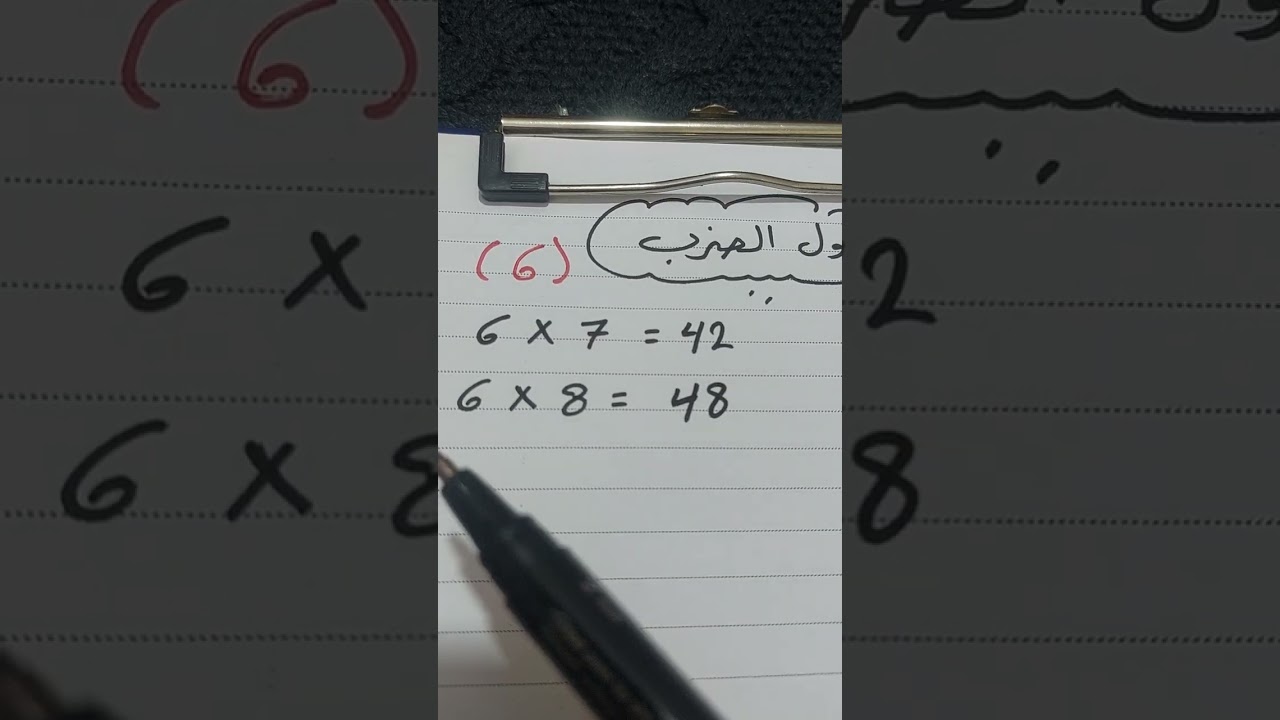 ول الضرب
(6)
6 × 7 = 42
6 × 8 = 48